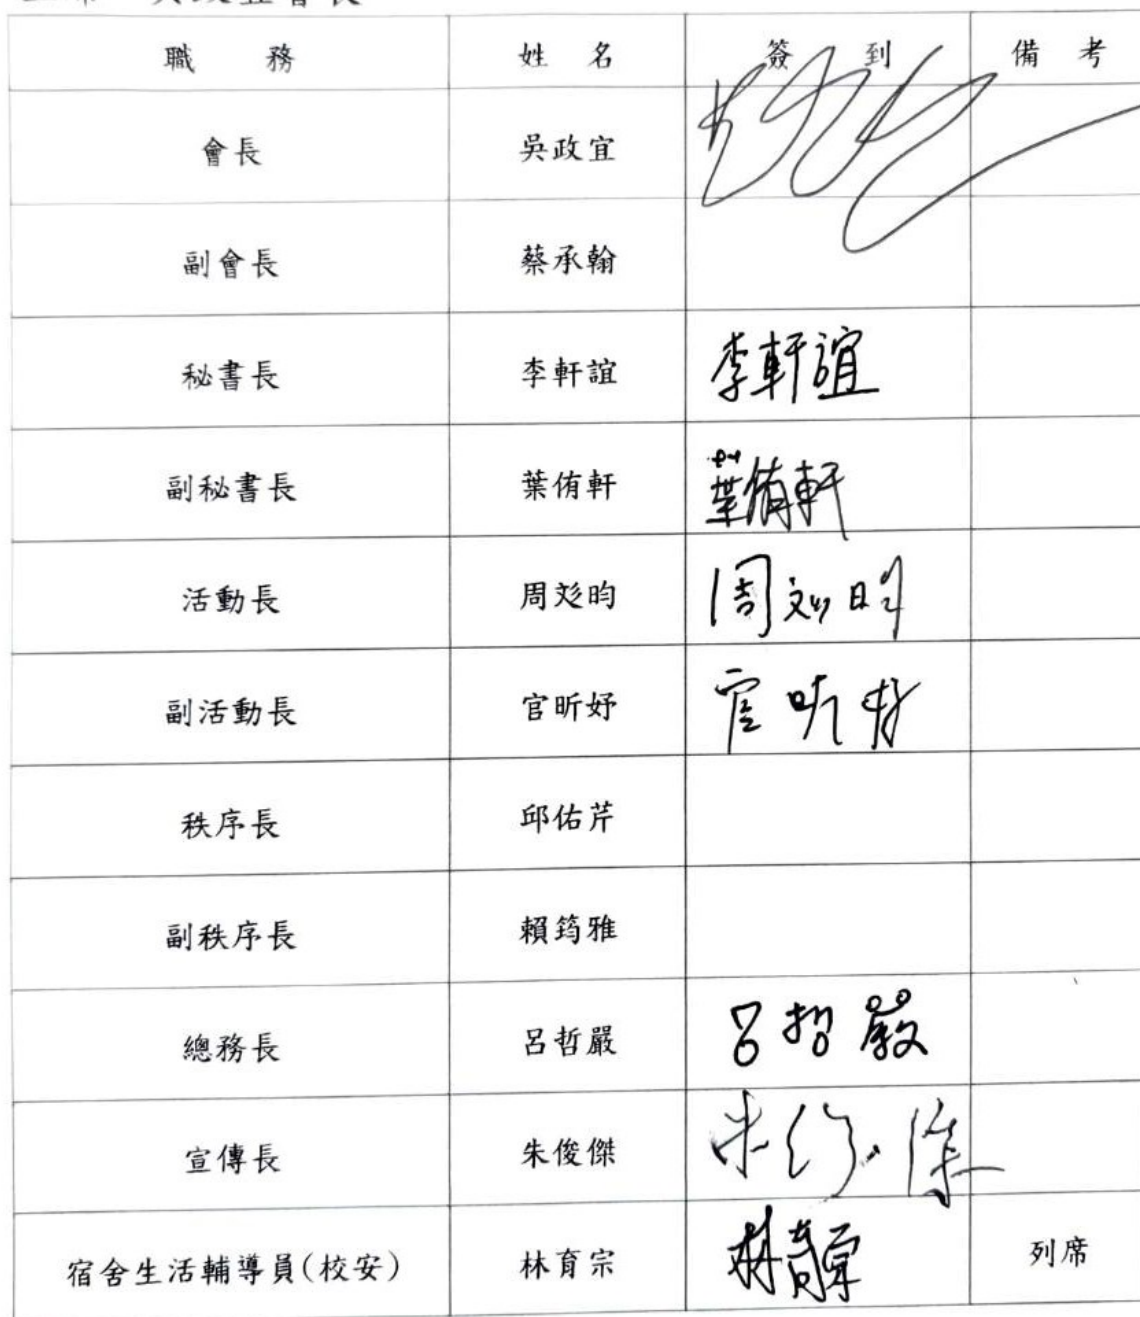 職 務 姓 名 簽 到 備 考
會長 吳政宜
副會長 蔡承翰
秘書長 李軒誼 李軒誼
副秘書長 葉侑軒 葉侑軒
活動長 周彣昀 周彣昀
副活動長 官昕妤 官昕妤
秩序長 邱佑芹
副秩序長 賴筠雅
總務長 呂哲嚴 呂哲嚴
宣傳長 朱俊傑 朱俊傑
宿舍生活輔導員(校安) 林育宗 林育宗 列席